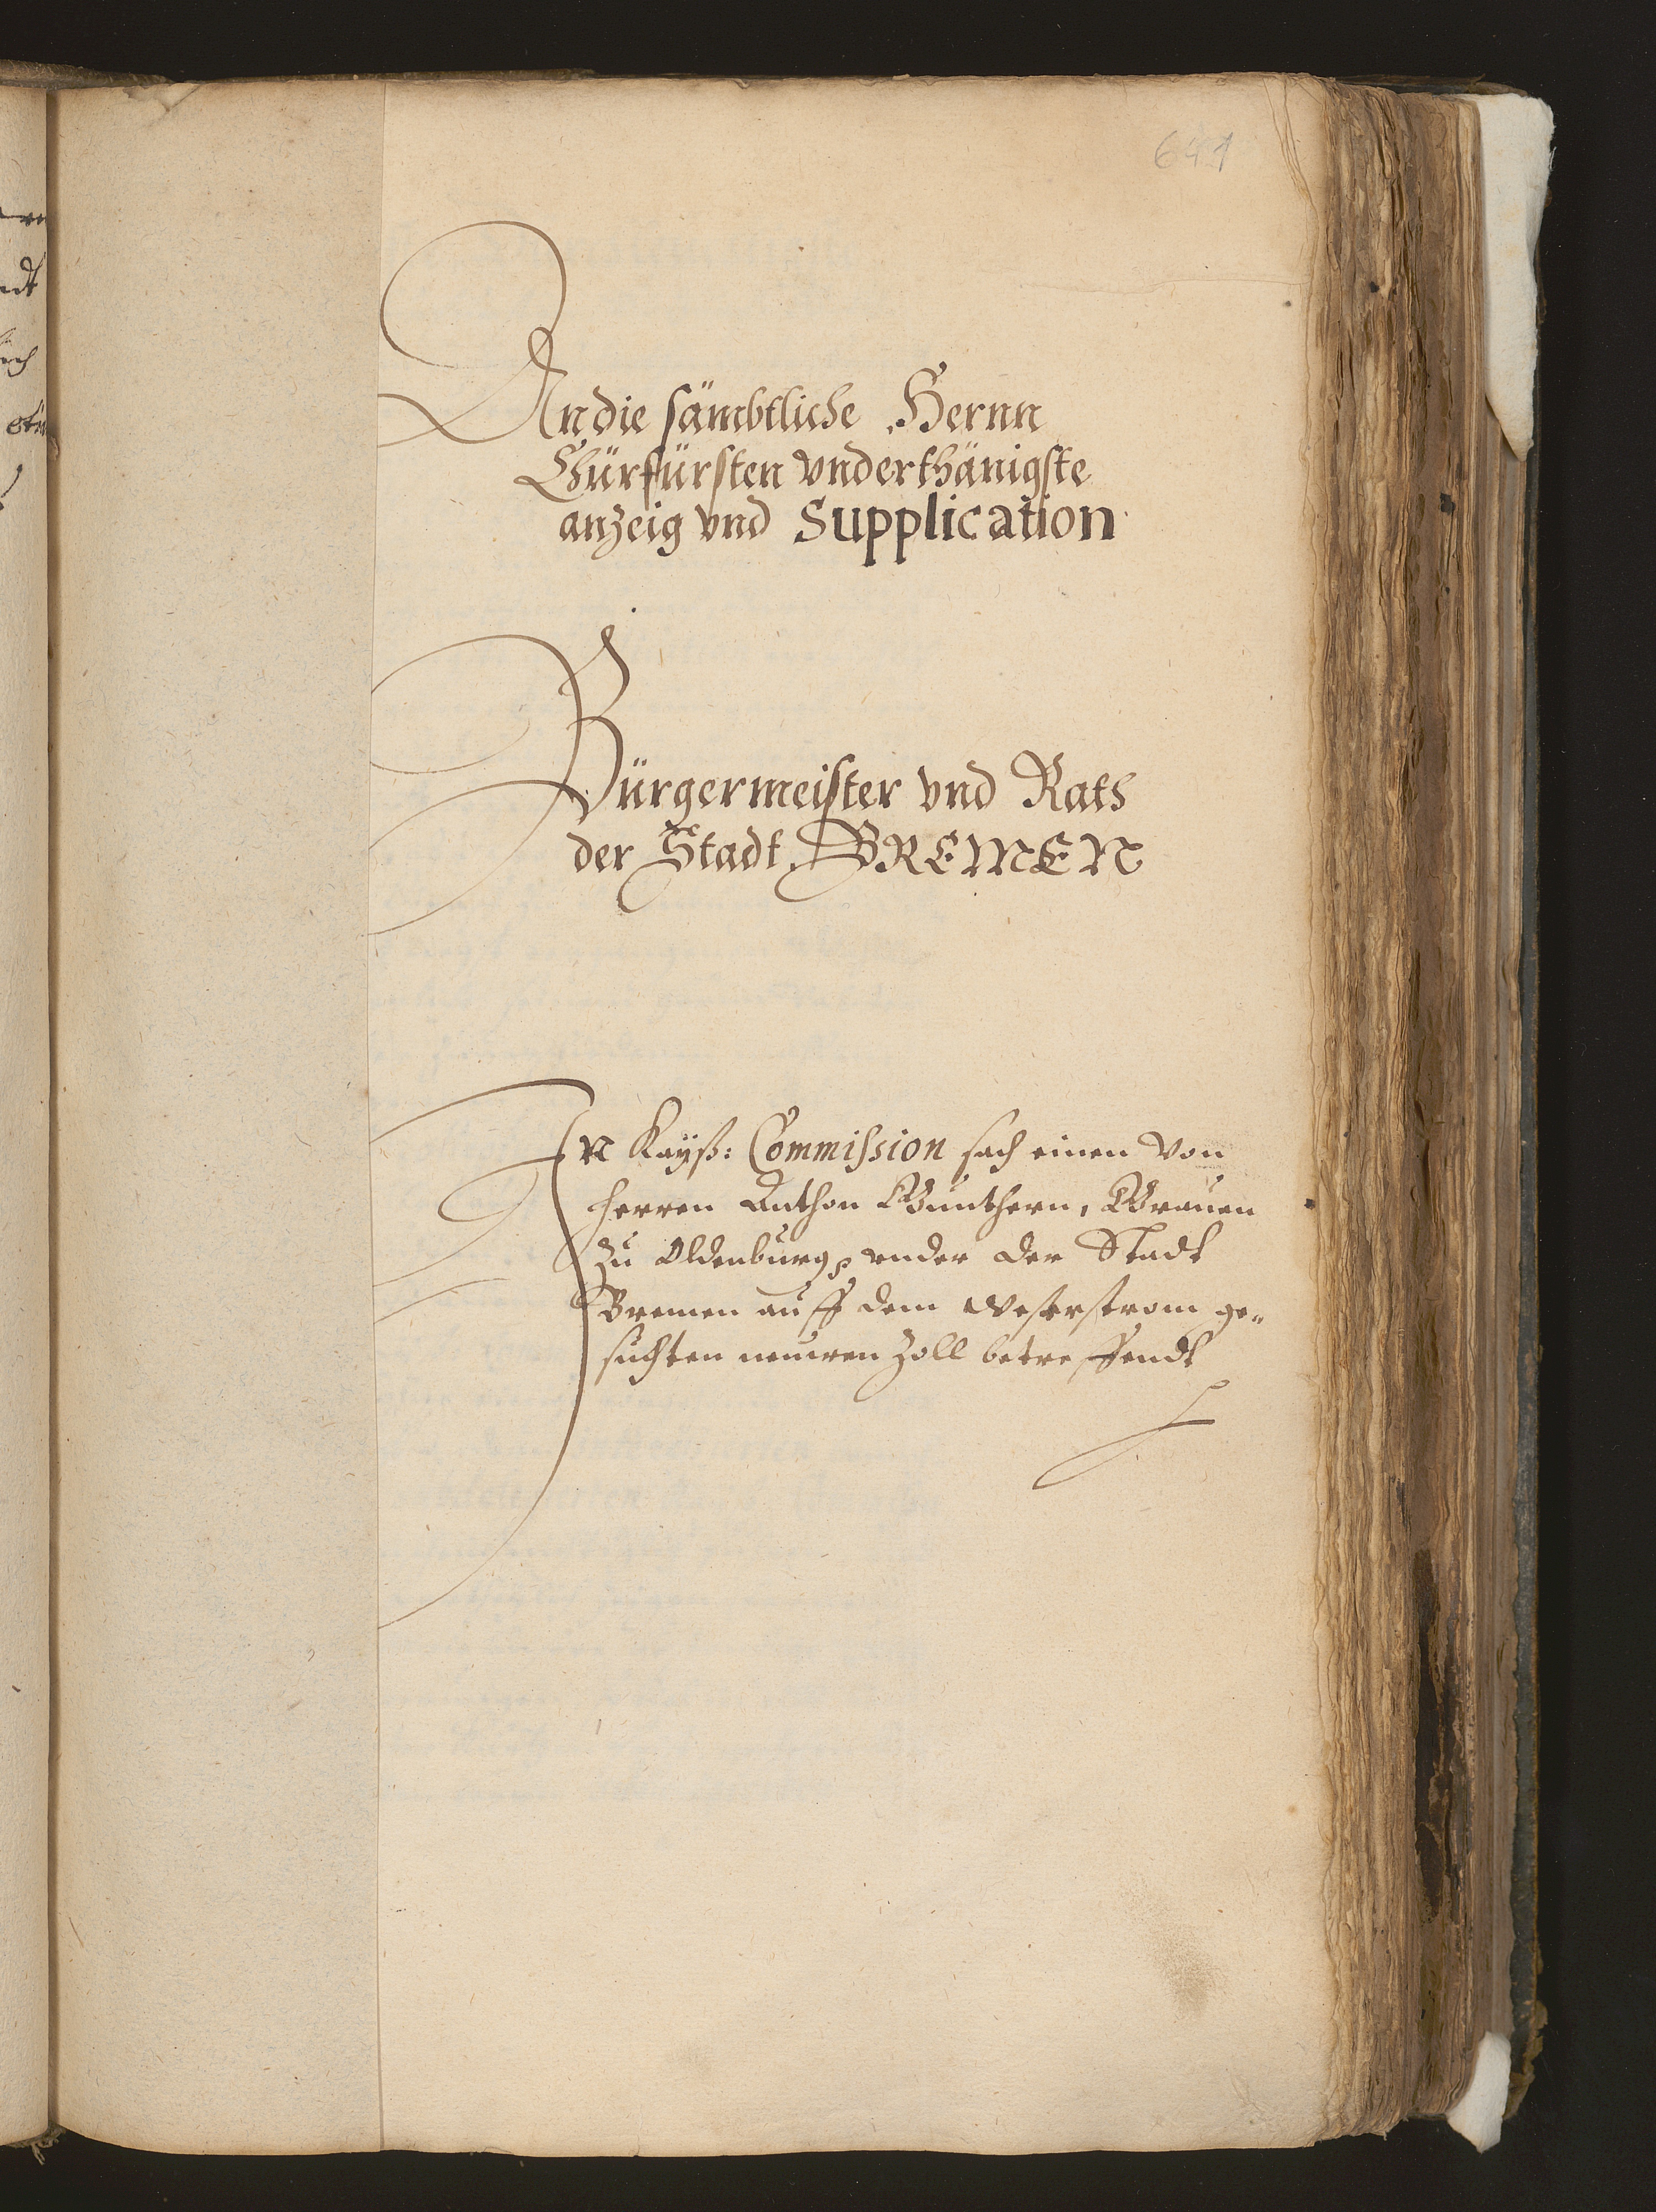 641
An die sämbtliche Herrn
Chürfürsten vnderthänigste
anzeig vnd Supplication
Bürgermeister vnd Rath
der Stadt BREMEN
In Kayß: Commission sach einen von
Herren Anthon Günthern, Grauen
zu Oldenburg, vnder der Stadt
Bremen auff dem Weserstrom ge„
suchten neuwen Zoll betreffendt